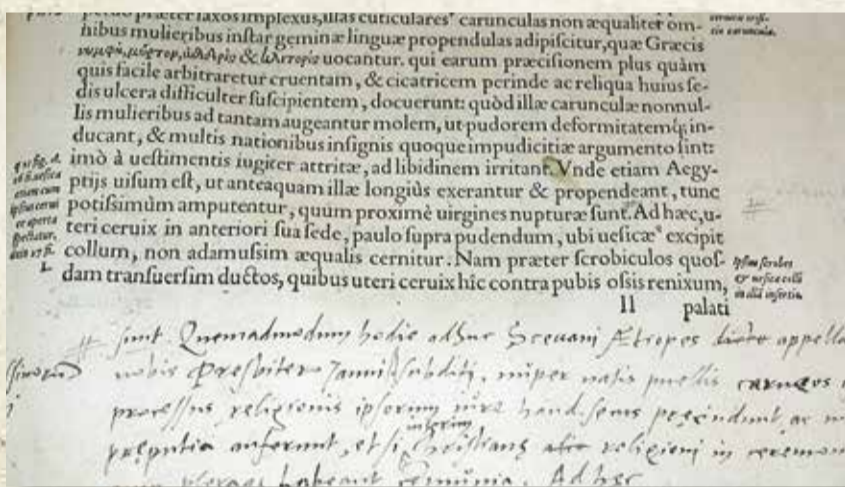 præter laxos implexus, illas cuticulares carunculas non æqualiter om-
nibus mulieribus instar geminæ linguæ propendulas adipiscitur, quæ Græcis
& uocantur. qui earum præcisionem plus quàm
quis facile arbitraretur cruentam, & cicatricem perinde ac reliqua huius se-
dis ulcera difficulter suscipientem, docuerunt: quòd illæ carunculæ nonnul-
lis mulieribus ad tantam augeantur molem, ut pudorem deformitatemq́; in-
ducant, & multis nationibus insignis quoque impudicitiæ argumento sint:
imò à uestimentis iugiter attritæ, ad libidinem irritant. Vnde etiam Aegy-
ptijs uisum est, ut anteaquam illæ longiùs exerantur & propendeant, tunc
potissimùm amputentur, quum proximè uirgines nupturæ sunt. Ad hæc, u-
teri ceruix in anteriori sua sede, paulo supra pudendum, ubi uesicæ excipit
collum, non adamussim æqualis cernitur. Nam præter scrobiculos quos-
dam transuersim ductos, quibus uteri ceruix hîc contra pubis ossis renixum,
ll palati
ipsius scrobes
& uesicæ colli
in illa insertio.
sunt. Quemadmodum hodie adhuc Æthiopes appella
nobis Presbitero Ianni subditi, nuper natis puellis carneos
processus religionis ipsorum iure haud secus pręcindunt, ac
interim
pręputia auferunt, etsi Christianę religioni in ceremon
habeant communia. Ad hęc